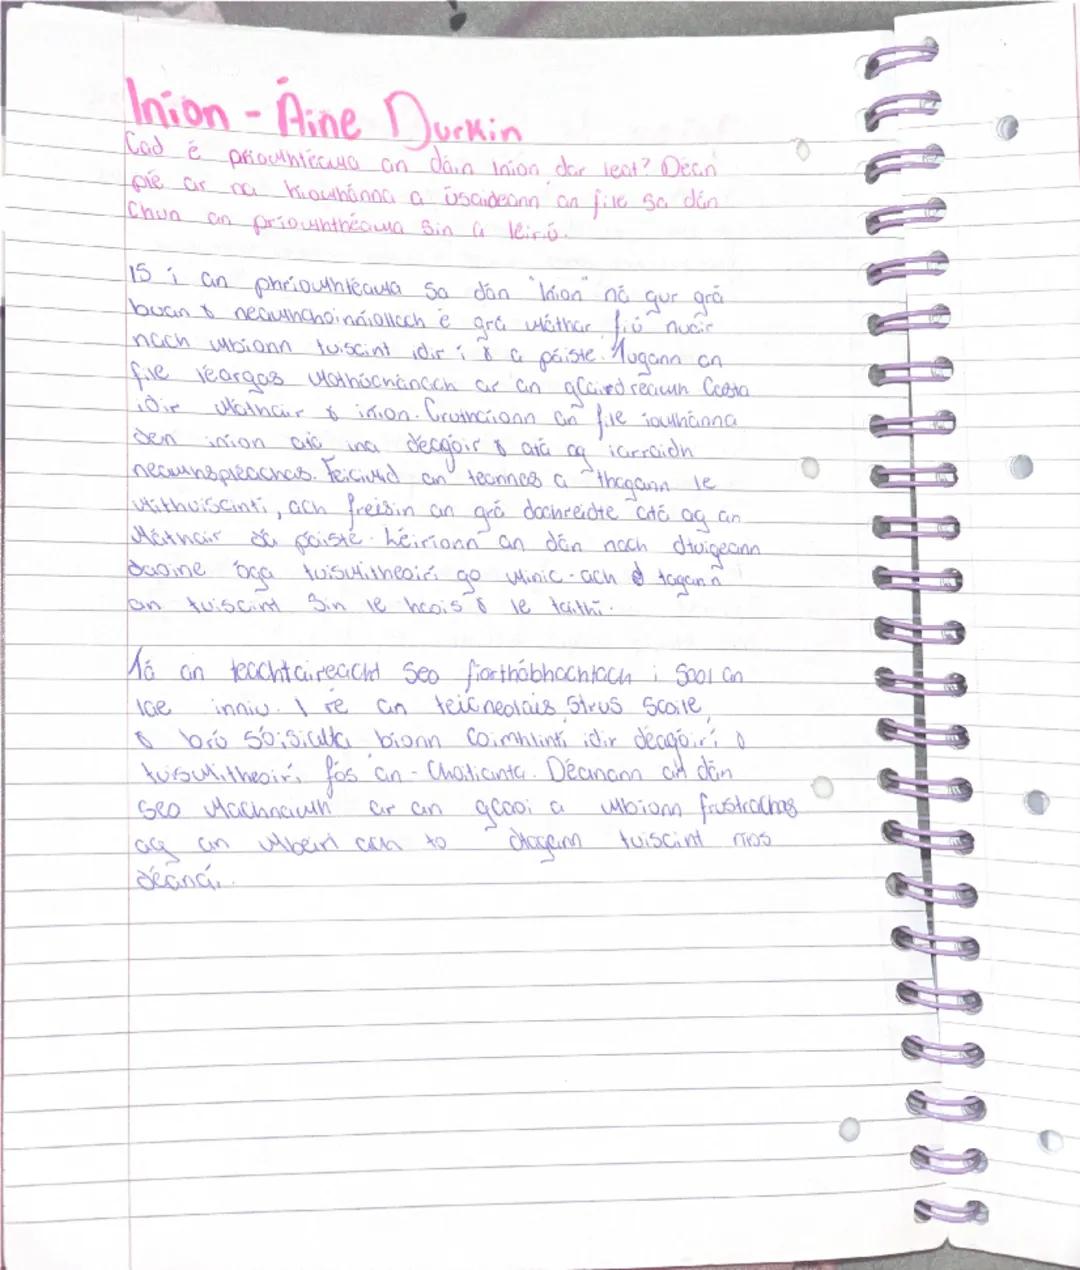 Iníon - Áine Durkin
Cad é príomhtéama an dáin Iníon dar leat? Déan
plé ar na híomhánna a úsáideann an file sa dán
Chun an príomhthéama sin a léiriú.
Is í an phríomhtéama sa dán "Iníon" ná gur grá
buan & neamhchoinníollach é grá máthar fiú nuair
nach mbíonn tuiscint idir í & a páiste. Tugann an
file léargas mothúchánach ar an gcaidreamh Casta
idir Máthair & iníon. Cruthaíonn an file íomhánna
den iníon atá ina déagóir & atá ag iarraidh
neamhspleáchas. Feicimid an teannas a thagann le
míthuiscintí, ach freisin an grá dochreidte atá ag an
Máthair dá páiste. Léiríonn an dán nach dtuigeann
daoine óga tuismitheoirí go minic - ach tagann
an tuiscint sin le haois & le taithí.
Tá an teachtaireacht seo fíorthábhachtach i saol an
lae inniu. I ré an teicneolaís strus scoile,
& brú sóisialta bíonn coimhlintí idir déagóirí &
tuismitheoirí fós an-Choitianta. Déanann an dán
seo machnamh ar an gcaoi a mbíonn frustrachas
ag an mbeirt ach to dtagann tuiscint níos
déanaí.